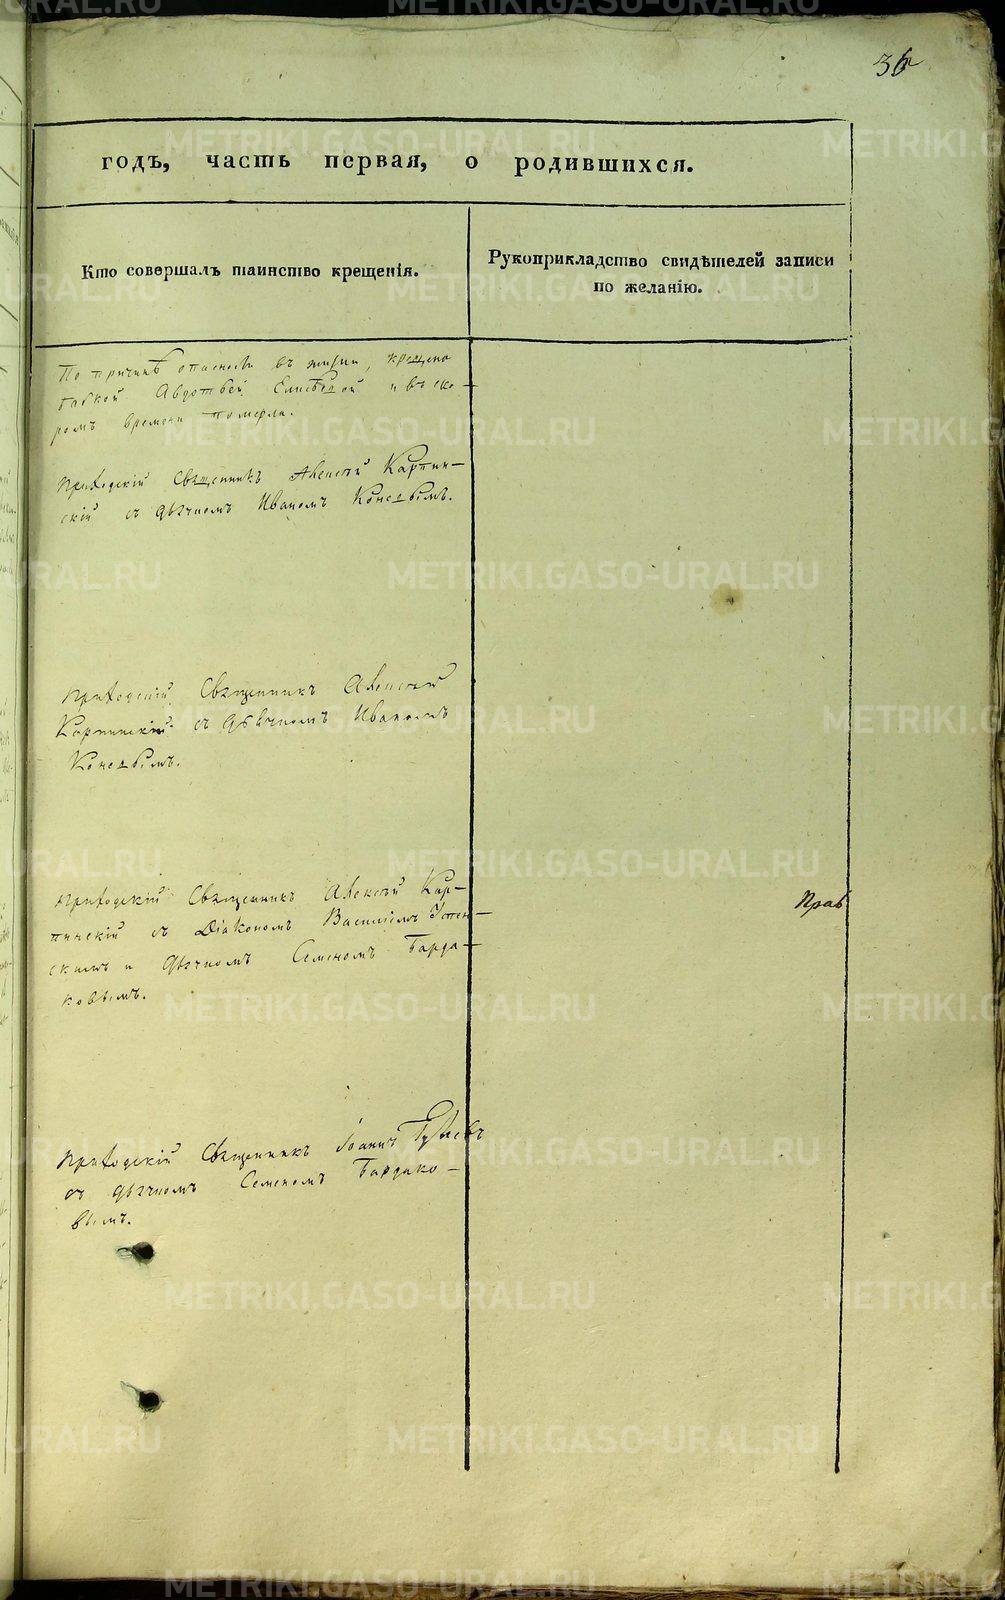 36
годъ, часть первая, о родившихся.
Кто совершалъ таинство крещенія.
Рукоприкладство свидѣтелей записи
по желанію.
По причинѣ опасности въ жизни, крещена
бабкой Авдотьей и въ ско-
ромъ времени померла.
Приходскій Священникъ Алексѣй Карпин-
скій съ дьячкомъ Иваномъ Коневымъ.
Приходскій Священникъ Алексѣй
Карпинскій съ дьячкомъ Иваномъ
Коневымъ.
Приходскій Священникъ Алексѣй Кар-
пинскій съ Діакономъ Василіемъ Успен-
скимъ и дьячкомъ Семеномъ Барда-
ковымъ.
Прав
Приходскій Священникъ Іоаннъ
съ дьячкомъ Семеномъ Бардако-
вымъ.
METRIKI.GASO-URAL.RU